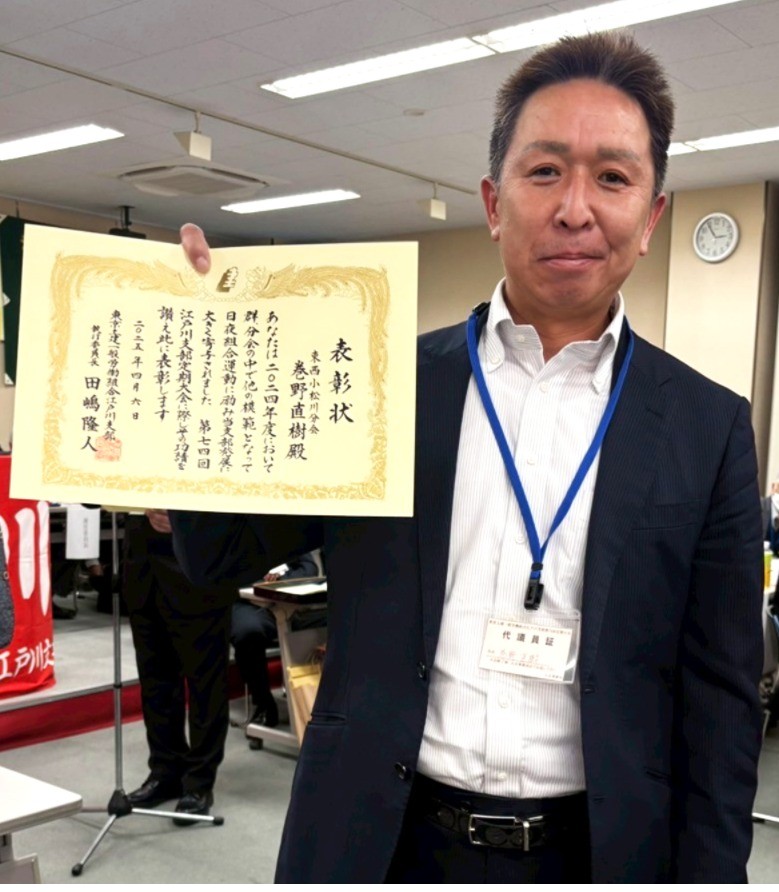 表彰状
東西小松川分会
巻野直樹殿
あなたは二〇二四年度において
群、分会の中で他の模範となって
日夜組合運動に励み当支部発展に
大きく寄与されました 第七四回
江戸川支部定期大会に際しその功績を
讃え此に表彰します
二〇二五年四月六日
東京土建一般労働組合江戸川支部
執行委員長 田嶋隆人
代議員証
江戸川支